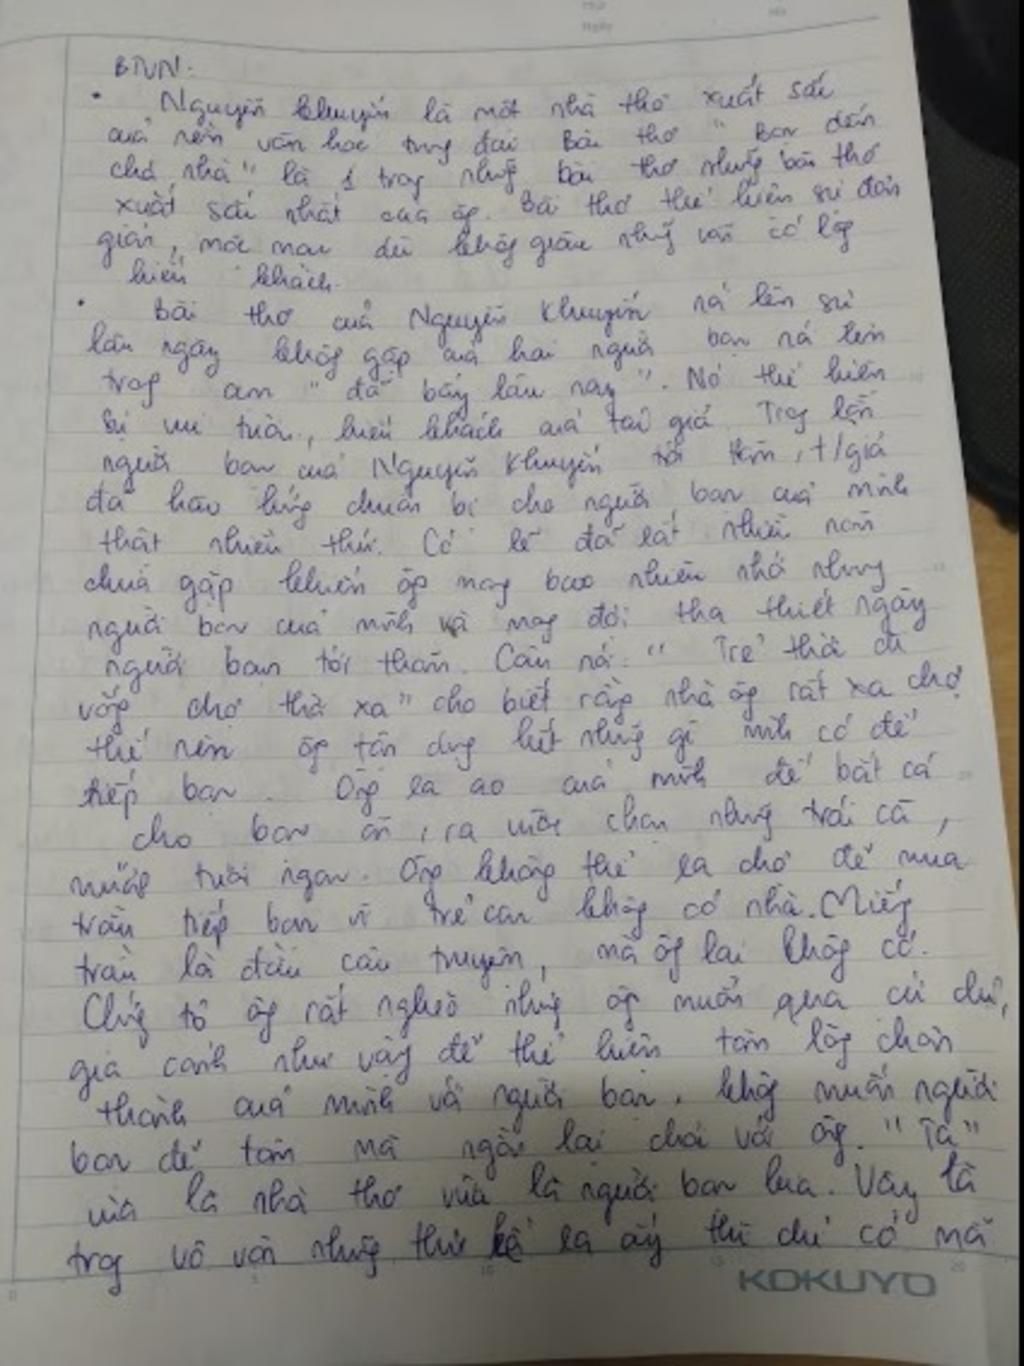 BTVN.
• Nguyễn Khuyến là một nhà thơ xuất sắc
của nền văn học trung đại Bài thơ " Bạn đến
chơi nhà " là 1 trog nhữg bài thơ nhữg bài thơ
xuất sắc nhất của ôg. Bài thơ thể hiện sự đơn
giản, mộc mạc dù khôg giàu nhưg vẫn có lòg
hiếu khách.
• Bài thơ của Nguyễn Khuyến nói lên sự
lâu ngày khôg gặp của hai người bạn nói lên
trog cụm " đã bấy lâu nay ". Nó thể hiện
sự vui tươi, hiếu khách của tác giả. Trog lần
người bạn của Nguyễn Khuyến tới thăm, t/giả
đã háo hức chuẩn bị cho người bạn của mình
thật nhiều thứ. Có lẽ đã rất nhiều năm
chưa gặp khiến ôg mog bao nhiêu nhớ nhung
người bạn của mình và mog đợi tha thiết ngày
người bạn tới thăm. Câu nói: " Trẻ thời đi
vắg chợ thời xa" cho biết rằg nhà ôg rất xa chợ
thế nên ôg tận dụg hết nhữg gì mình có để
tiếp bạn. Ôg ra ao của mình để bắt cá
cho bạn ăn, ra vườn chọn nhữg trái cà,
mướp tươi ngon. Ôg khôg thể ra chợ để mua
trầu tiếp bạn vì trẻ con khôg có nhà. Miếg
trầu là đầu câu truyện, mà ôg lại khôg có.
Chứg tỏ ôg rất nghèo nhưg ôg muốn qua cử chỉ,
gia cảnh như vậy để thể hiện tấm lòg chân
thành của mình với người bạn, khôg muốn người
bạn để tâm mà ngồi lại chơi với ôg. " Ta"
vừa là nhà thơ vừa là người bạn kia. Vậy là
trog vô vàn nhữg thứ kể ra ấy thì chỉ có mỗi
KOKUYO